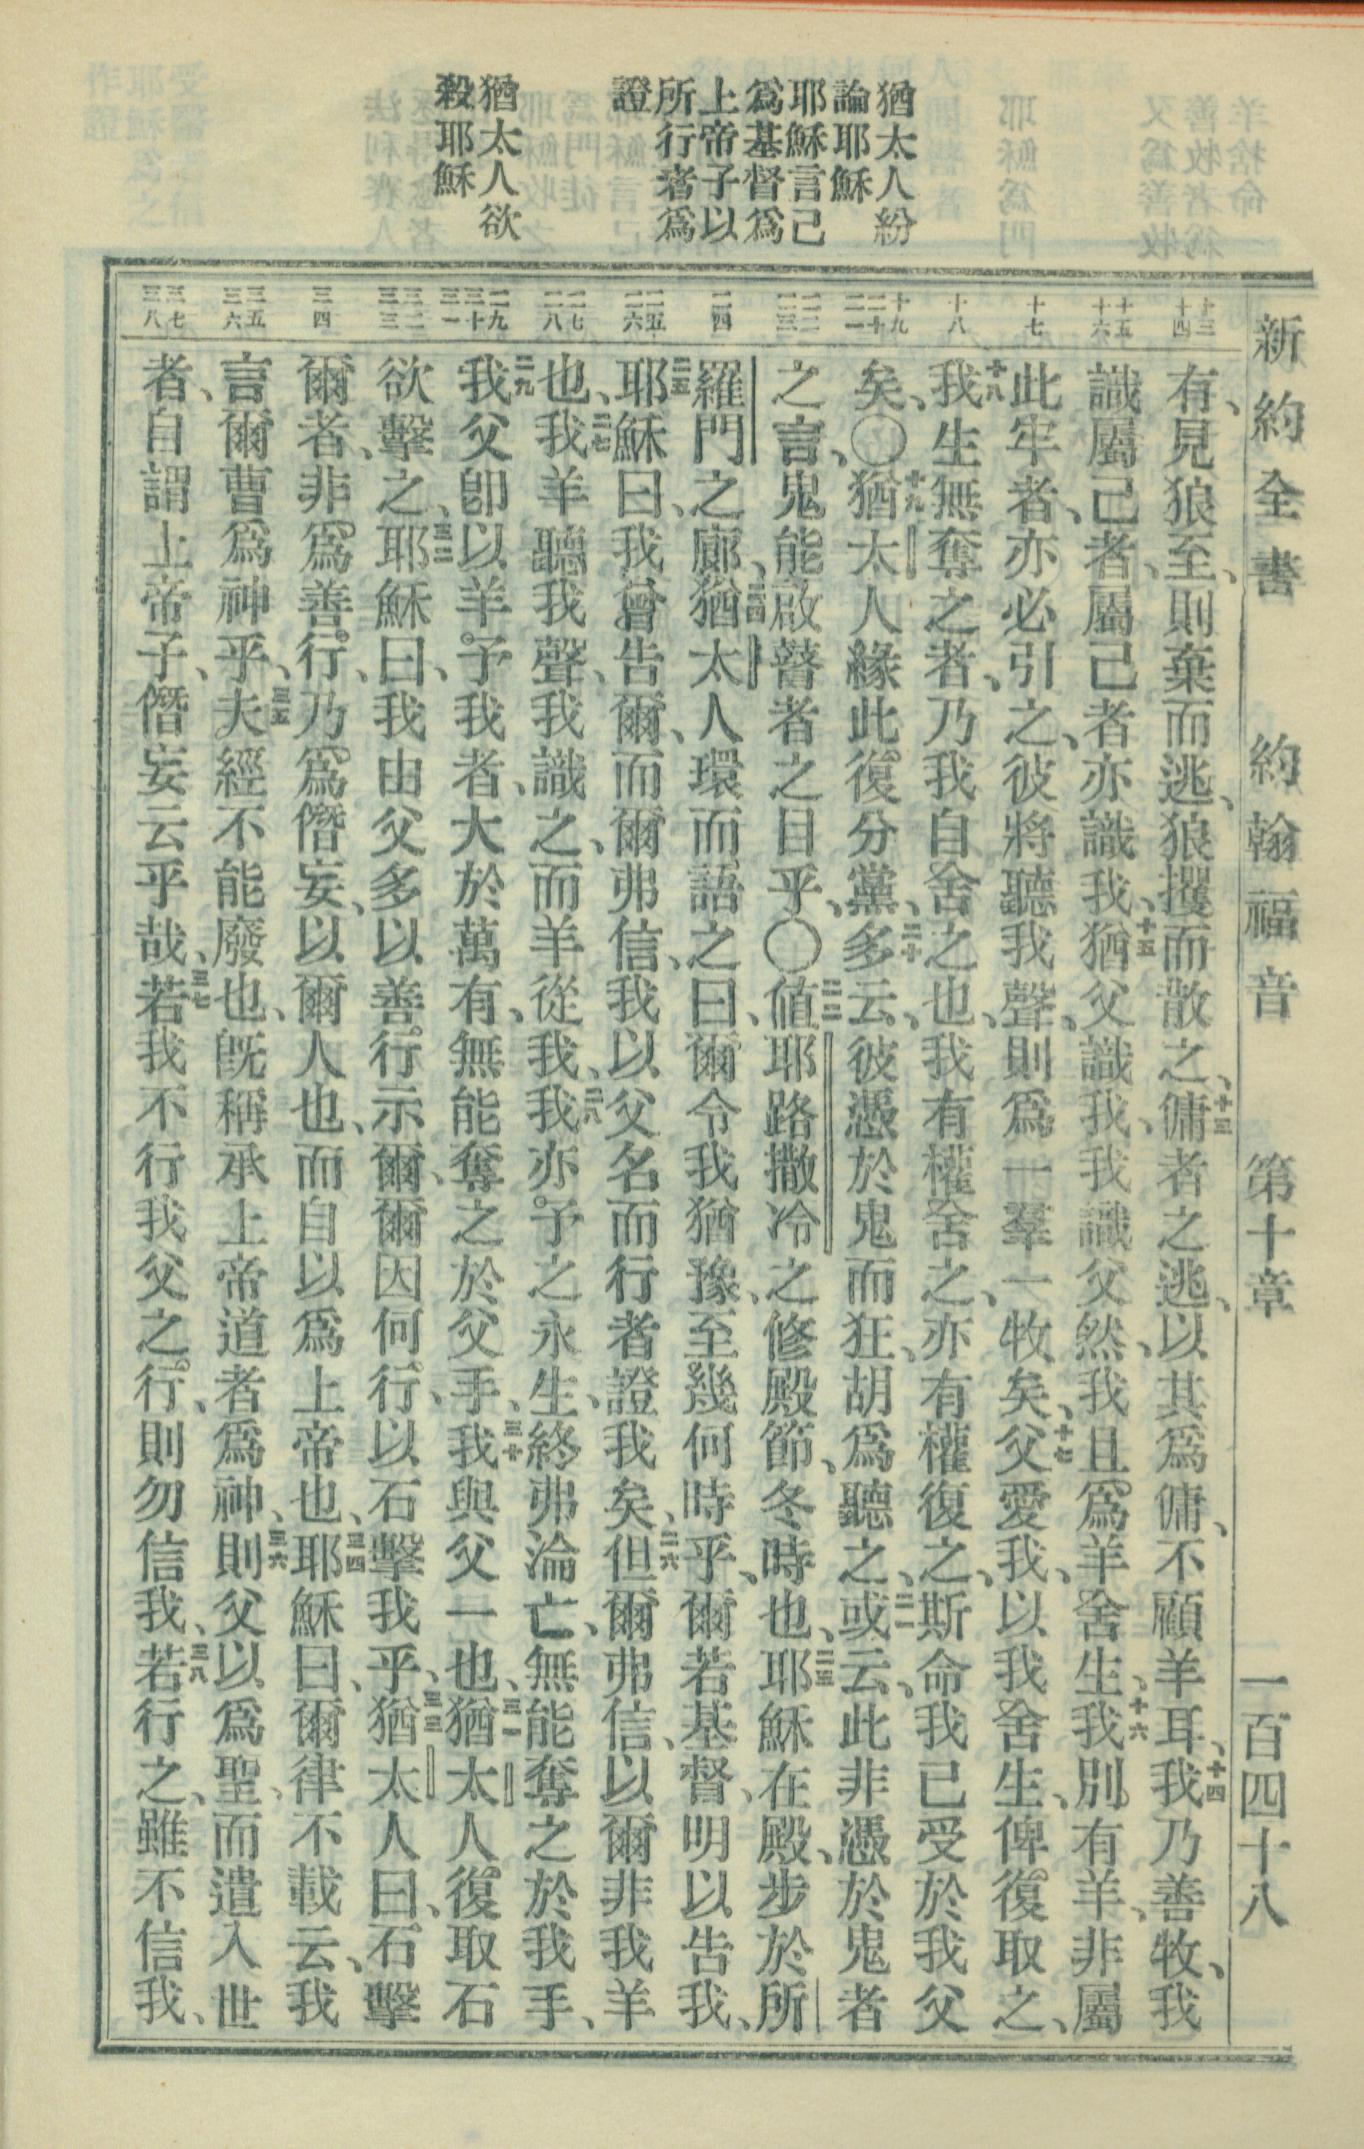 新約全書　約翰福音　第十章　一百四十八
猶太人紛
論耶穌
耶穌言己
爲基督爲
上帝子以
所行者爲
證
猶太人欲
殺耶穌
十三 十四
十五 十六
十七
十八
十九 二十 二一
二二 二三
二四
二五 二六
二七 二八
二九 三十 三一
三二 三三
三四
三五 三六
三七 三八
有、見狼至、則棄而逃、狼攫而散之、十三傭者之逃、以其爲傭、不顧羊耳、十四我乃善牧、我
識屬己者、屬己者亦識我、十五猶父識我、我識父然、我且爲羊舍生、十六我別有羊、非屬
此牢者、亦必引之、彼將聽我聲、則爲一羣一牧矣、十七父愛我、以我舍生、俾復取之、
十八我生無奪之者、乃我自舍之也、我有權舍之、亦有權復之、斯命我已受於我父
矣、〇十九猶太人緣此復分黨、二十多云、彼憑於鬼而狂、胡爲聽之、二一或云、此非憑於鬼者
之言、鬼能啟瞽者之目乎、〇二二値耶路撒冷之修殿節、冬時也、二三耶穌在殿、步於所
羅門之廊、二四猶太人環而語之曰、爾令我猶豫、至幾何時乎、爾若基督、明以告我、
二五耶穌曰、我曾告爾、而爾弗信、我以父名而行者證我矣、二六但爾弗信、以爾非我羊
也、二七我羊聽我聲、我識之、而羊從我、二八我亦予之永生、終弗淪亡、無能奪之於我手、
二九我父卽以羊予我者、大於萬有、無能奪之於父手、三十我與父一也、三一猶太人復取石
欲擊之、三二耶穌曰、我由父多以善行示爾、爾因何行、以石擊我乎、三三猶太人曰、石擊
爾者、非爲善行、乃爲僭妄、以爾人也、而自以爲上帝也、三四耶穌曰、爾律不載云、我
言爾曹爲神乎、三五夫經不能廢也、旣稱承上帝道者爲神、三六則父以爲聖、而遣入世
者、自謂上帝子、僭妄云乎哉、三七若我不行我父之行、則勿信我、三八若行之、雖不信我、